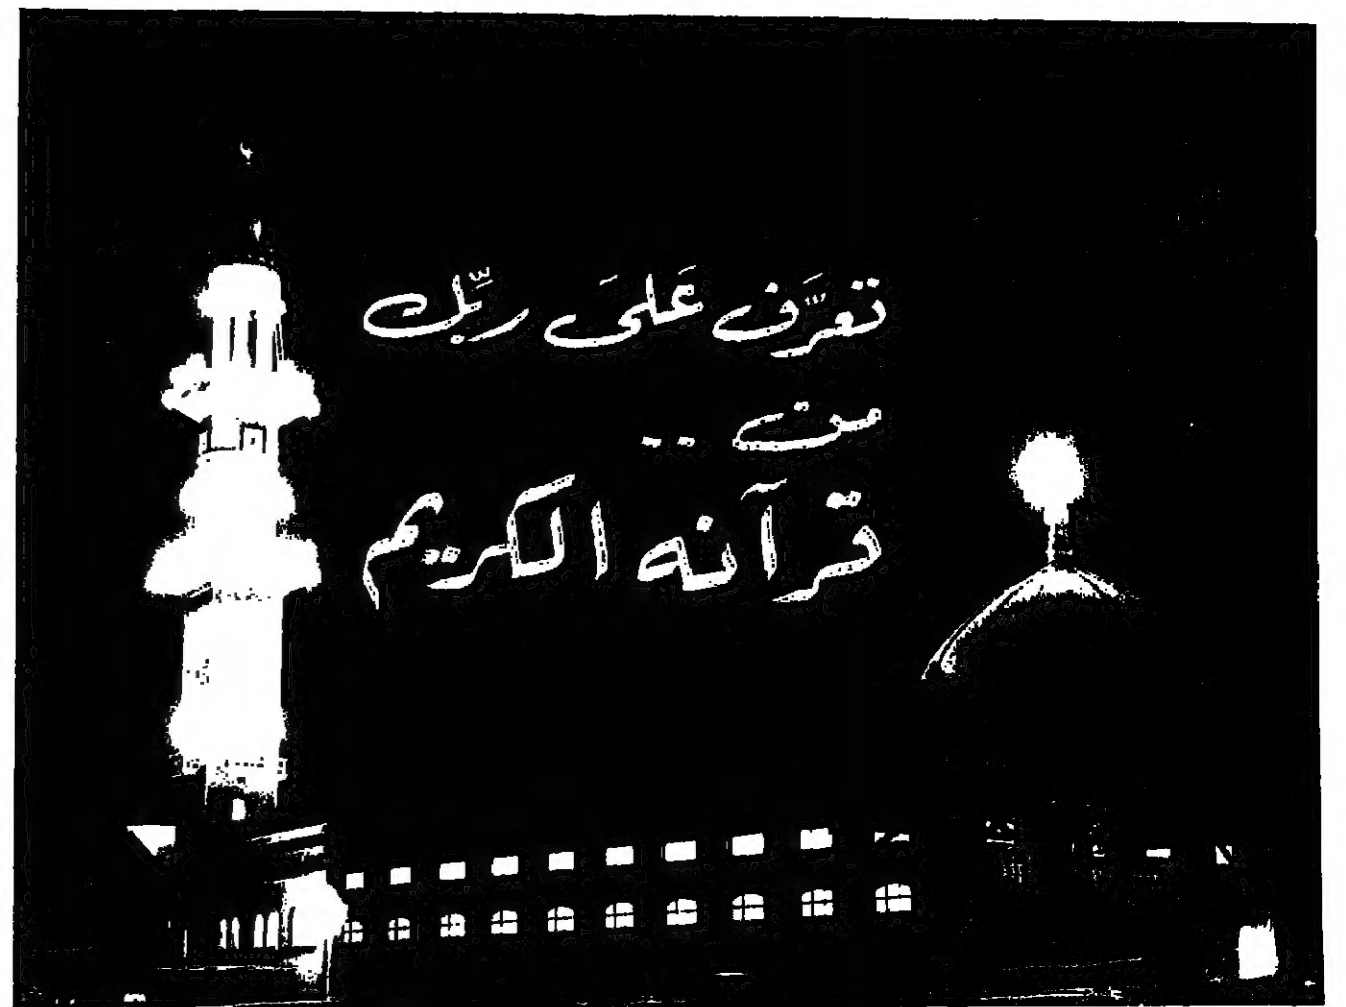 تعرَّف عَلىَ ربِّك
من ..
قرآنه الكريم